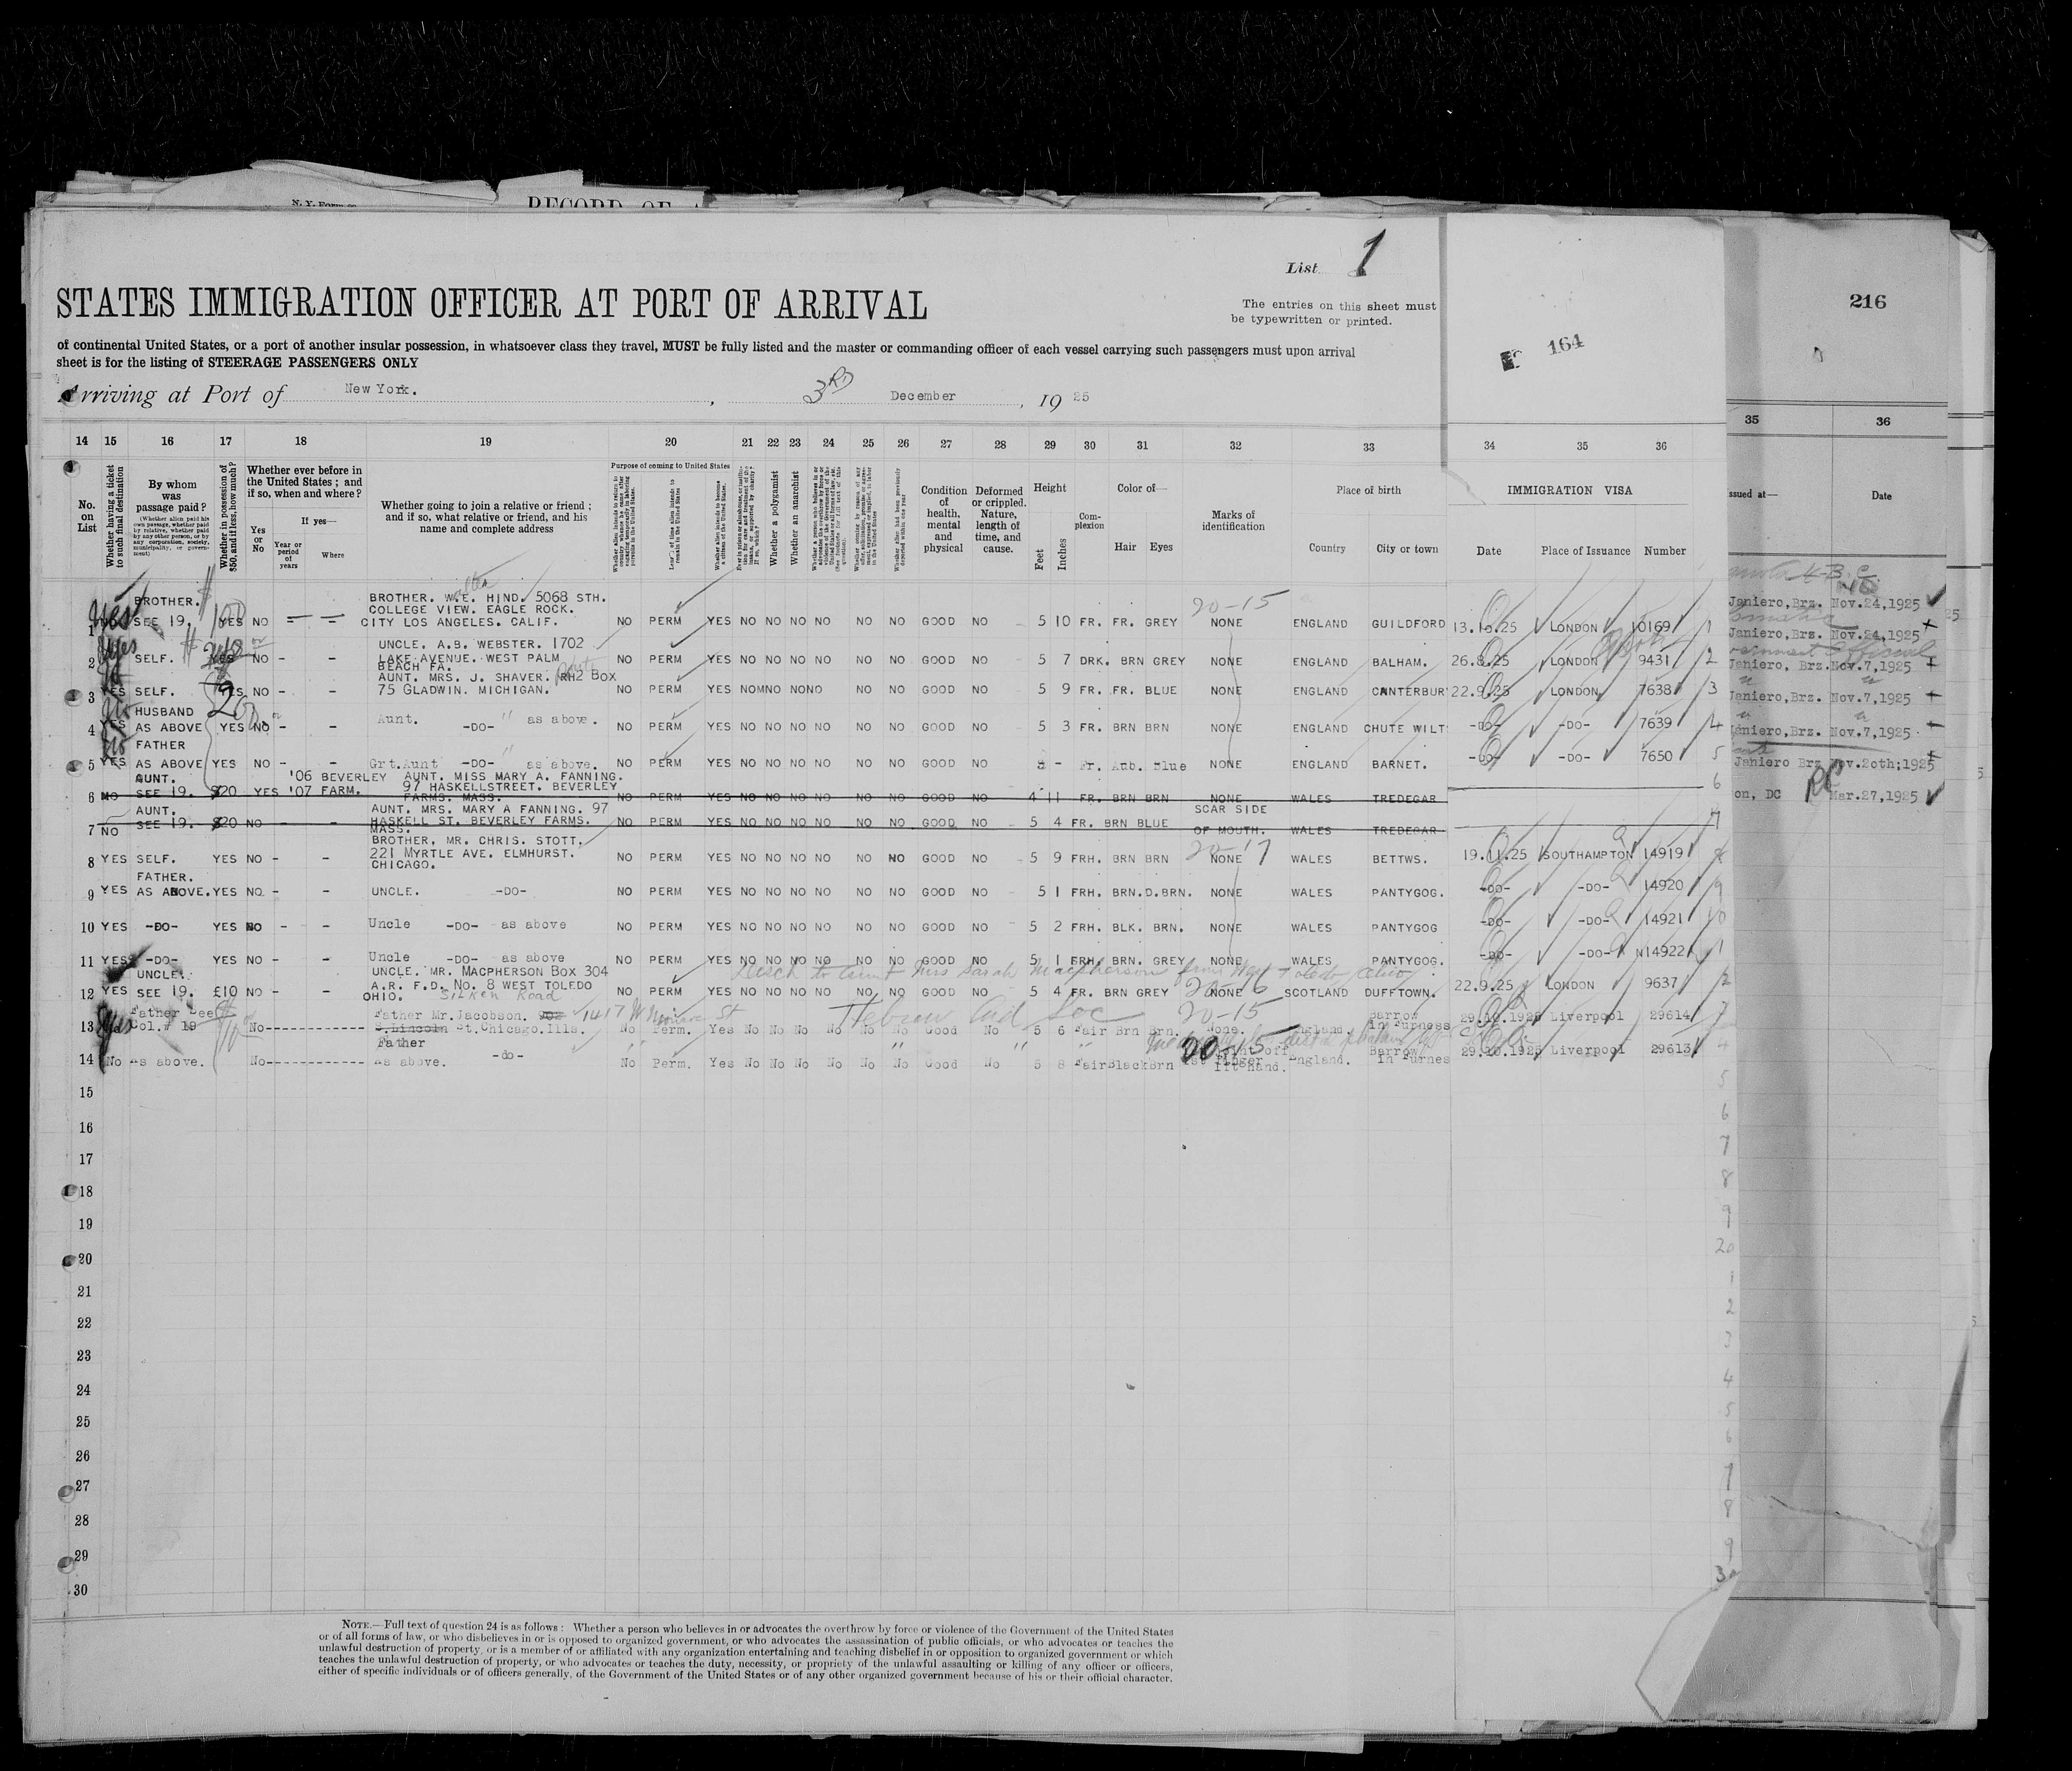 N. Y. Form
RECORD OF A
List 1
STATES IMMIGRATION OFFICER AT PORT OF ARRIVAL
The entries on this sheet must
be typewritten or printed.
216
164
of continental United States, or a port of another insular possession, in whatsoever class they travel, MUST be fully listed and the master or commanding officer of each vessel carrying such passengers must upon arrival
sheet is for the listing of STEERAGE PASSENGERS ONLY
Arriving at Port of New York. , 3RD December , 19 25
14 15 16 17 18 19 20 21 22 23 24 25 26 27 28 29 30 31 32 33 34 35 36 35 36
No. on List
Whether having a ticket to such final destination
By whom was passage paid?
(Whether alien paid his own passage, whether paid by relative, whether paid by any other person, or by any corporation, society, municipality, or government)
Whether in possession of $50, and if less, how much?
Whether ever before in the United States; and if so, when and where?
Yes or No
If yes—
Year or period of years
Where
Whether going to join a relative or friend; and if so, what relative or friend, and his name and complete address
Purpose of coming to United States
Whether a polygamist
Whether an anarchist
Condition of health, mental and physical
Deformed or crippled. Nature, length of time, and cause.
Height
Feet
Inches
Complexion
Color of—
Hair Eyes
Marks of identification
Place of birth
Country City or town
IMMIGRATION VISA
Date Place of Issuance Number
ssued at— Date
BROTHER. BROTHER. W.E. HIND. 5068 STH.
COLLEGE VIEW. EAGLE ROCK. 20-15
1 Yes SEE 19. 100 YES NO CITY LOS ANGELES. CALIF. NO PERM YES NO NO NO NO NO NO GOOD NO 5 10 FR. FR. GREY NONE ENGLAND GUILDFORD 13.10.25 LONDON 10169 1
UNCLE. A.B. WEBSTER. 1702
2 SELF. YES NO - - LAKE AVENUE. WEST PALM NO PERM YES NO NO NO NO NO NO GOOD NO 5 7 DRK. BRN GREY NONE ENGLAND BALHAM. 26.8.25 LONDON 9431 2
BEACH FA.
AUNT. MRS. J. SHAVER. RH2 BOX
3 YES SELF. YES NO - - 75 GLADWIN. MICHIGAN. NO PERM YES NO NO NO NO NO NO GOOD NO 5 9 FR. FR. BLUE NONE ENGLAND CANTERBUR 22.9.25 LONDON 7638 3
HUSBAND
4 YES AS ABOVE YES NO - - Aunt. -DO- " as above. NO PERM YES NO NO NO NO NO NO GOOD NO 5 3 FR. BRN BRN NONE ENGLAND CHUTE WILT -DO- -DO- 7639 4
FATHER
5 YES AS ABOVE YES NO - - Grt.Aunt -DO- " as above. NO PERM YES NO NO NO NO NO NO GOOD NO - Fr. Aub. Blue NONE ENGLAND BARNET. -DO- -DO- 7650 5
AUNT. '06 BEVERLEY AUNT. MISS MARY A. FANNING.
6 NO SEE 19. $20 YES '07 FARM. 97 HASKELLSTREET. BEVERLEY
FARMS. MASS. NO PERM YES NO NO NO NO NO NO GOOD NO 4 11 FR. BRN BRN NONE WALES TREDEGAR 6
AUNT. AUNT. MRS. MARY A FANNING. 97 SCAR SIDE
7 NO SEE 19. $20 NO - - HASKELL ST. BEVERLEY FARMS. NO PERM YES NO NO NO NO NO NO GOOD NO 5 4 FR. BRN BLUE OF MOUTH. WALES TREDEGAR 7
MASS.
BROTHER, MR. CHRIS. STOTT.
8 YES SELF. YES NO - - 221 MYRTLE AVE. ELMHURST. NO PERM YES NO NO NO NO NO NO GOOD NO 5 9 FRH. BRN BRN 20-17 NONE WALES BETTWS. 19.11.25 SOUTHAMPTON 14919
CHICAGO.
FATHER.
9 YES AS ABOVE. YES NO - - UNCLE. -DO- NO PERM YES NO NO NO NO NO NO GOOD NO 5 1 FRH. BRN.D.BRN. NONE WALES PANTYGOG. -DO- -DO- 14920 9
10 YES -DO- YES NO - - Uncle -DO- as above NO PERM YES NO NO NO NO NO NO GOOD NO 5 2 FRH. BLK. BRN. NONE WALES PANTYGOG -DO- -DO- 14921 10
11 YES -DO- YES NO - - Uncle -DO- as above NO PERM YES NO NO NO NO NO NO GOOD NO 5 1 FRH. BRN. GREY NONE WALES PANTYGOG. -DO- -DO- N14922 1
UNCLE. UNCLE. MR. MACPHERSON BOX 304 Disch to Aunt Mrs Sarah Macpherson from West Toledo Ohio
12 YES SEE 19. £10 NO - - A.R. F.D. NO. 8 WEST TOLEDO NO PERM YES NO NO NO NO NO NO GOOD NO 5 4 FR. BRN GREY 20-16 NONE SCOTLAND DUFFTOWN. 22.9.25 LONDON 9637 2
OHIO. Silken Road
Father See Father Mr.Jacobson. 1417 W Monroe St Hebrew Aid Soc 20-15 Barrow
13 Yes Col.# 19 No S.Lincoln St.Chicago.Ills. No Perm. Yes No No No No No No Good No 5 6 Fair Brn Brn. None. England. in Furness 29.10.1925 Liverpool 29614
Father
14 No As above. No As above. -do- No Perm. Yes No No No No No No Good No 5 8 Fair Black Brn 20-15 1st finger lft hand. England. Barrow in Furnes 29.10.1925 Liverpool 29613
Janiero,Brz. Nov.24,1925
Janiero,Brz. Nov.24,1925
Official
Janiero, Brz. Nov.7,1925
Janiero,Brz. Nov.7,1925
Janiero,Brz. Nov.7,1925
Janiero Brz Nov.20th;1925
on, DC Mar.27,1925
15 5
16 6
17 7
18 8
19 9
20 20
21 1
22 2
23 3
24 4
25 5
26 6
27 7
28 8
29 9
30 30
NOTE.—Full text of question 24 is as follows: Whether a person who believes in or advocates the overthrow by force or violence of the Government of the United States
or of all forms of law, or who disbelieves in or is opposed to organized government, or who advocates the assassination of public officials, or who advocates or teaches the
unlawful destruction of property, or is a member of or affiliated with any organization entertaining and teaching disbelief in or opposition to organized government or which
teaches the unlawful destruction of property, or who advocates or teaches the duty, necessity, or propriety of the unlawful assaulting or killing of any officer or officers,
either of specific individuals or of officers generally, of the Government of the United States or of any other organized government because of his or their official character.